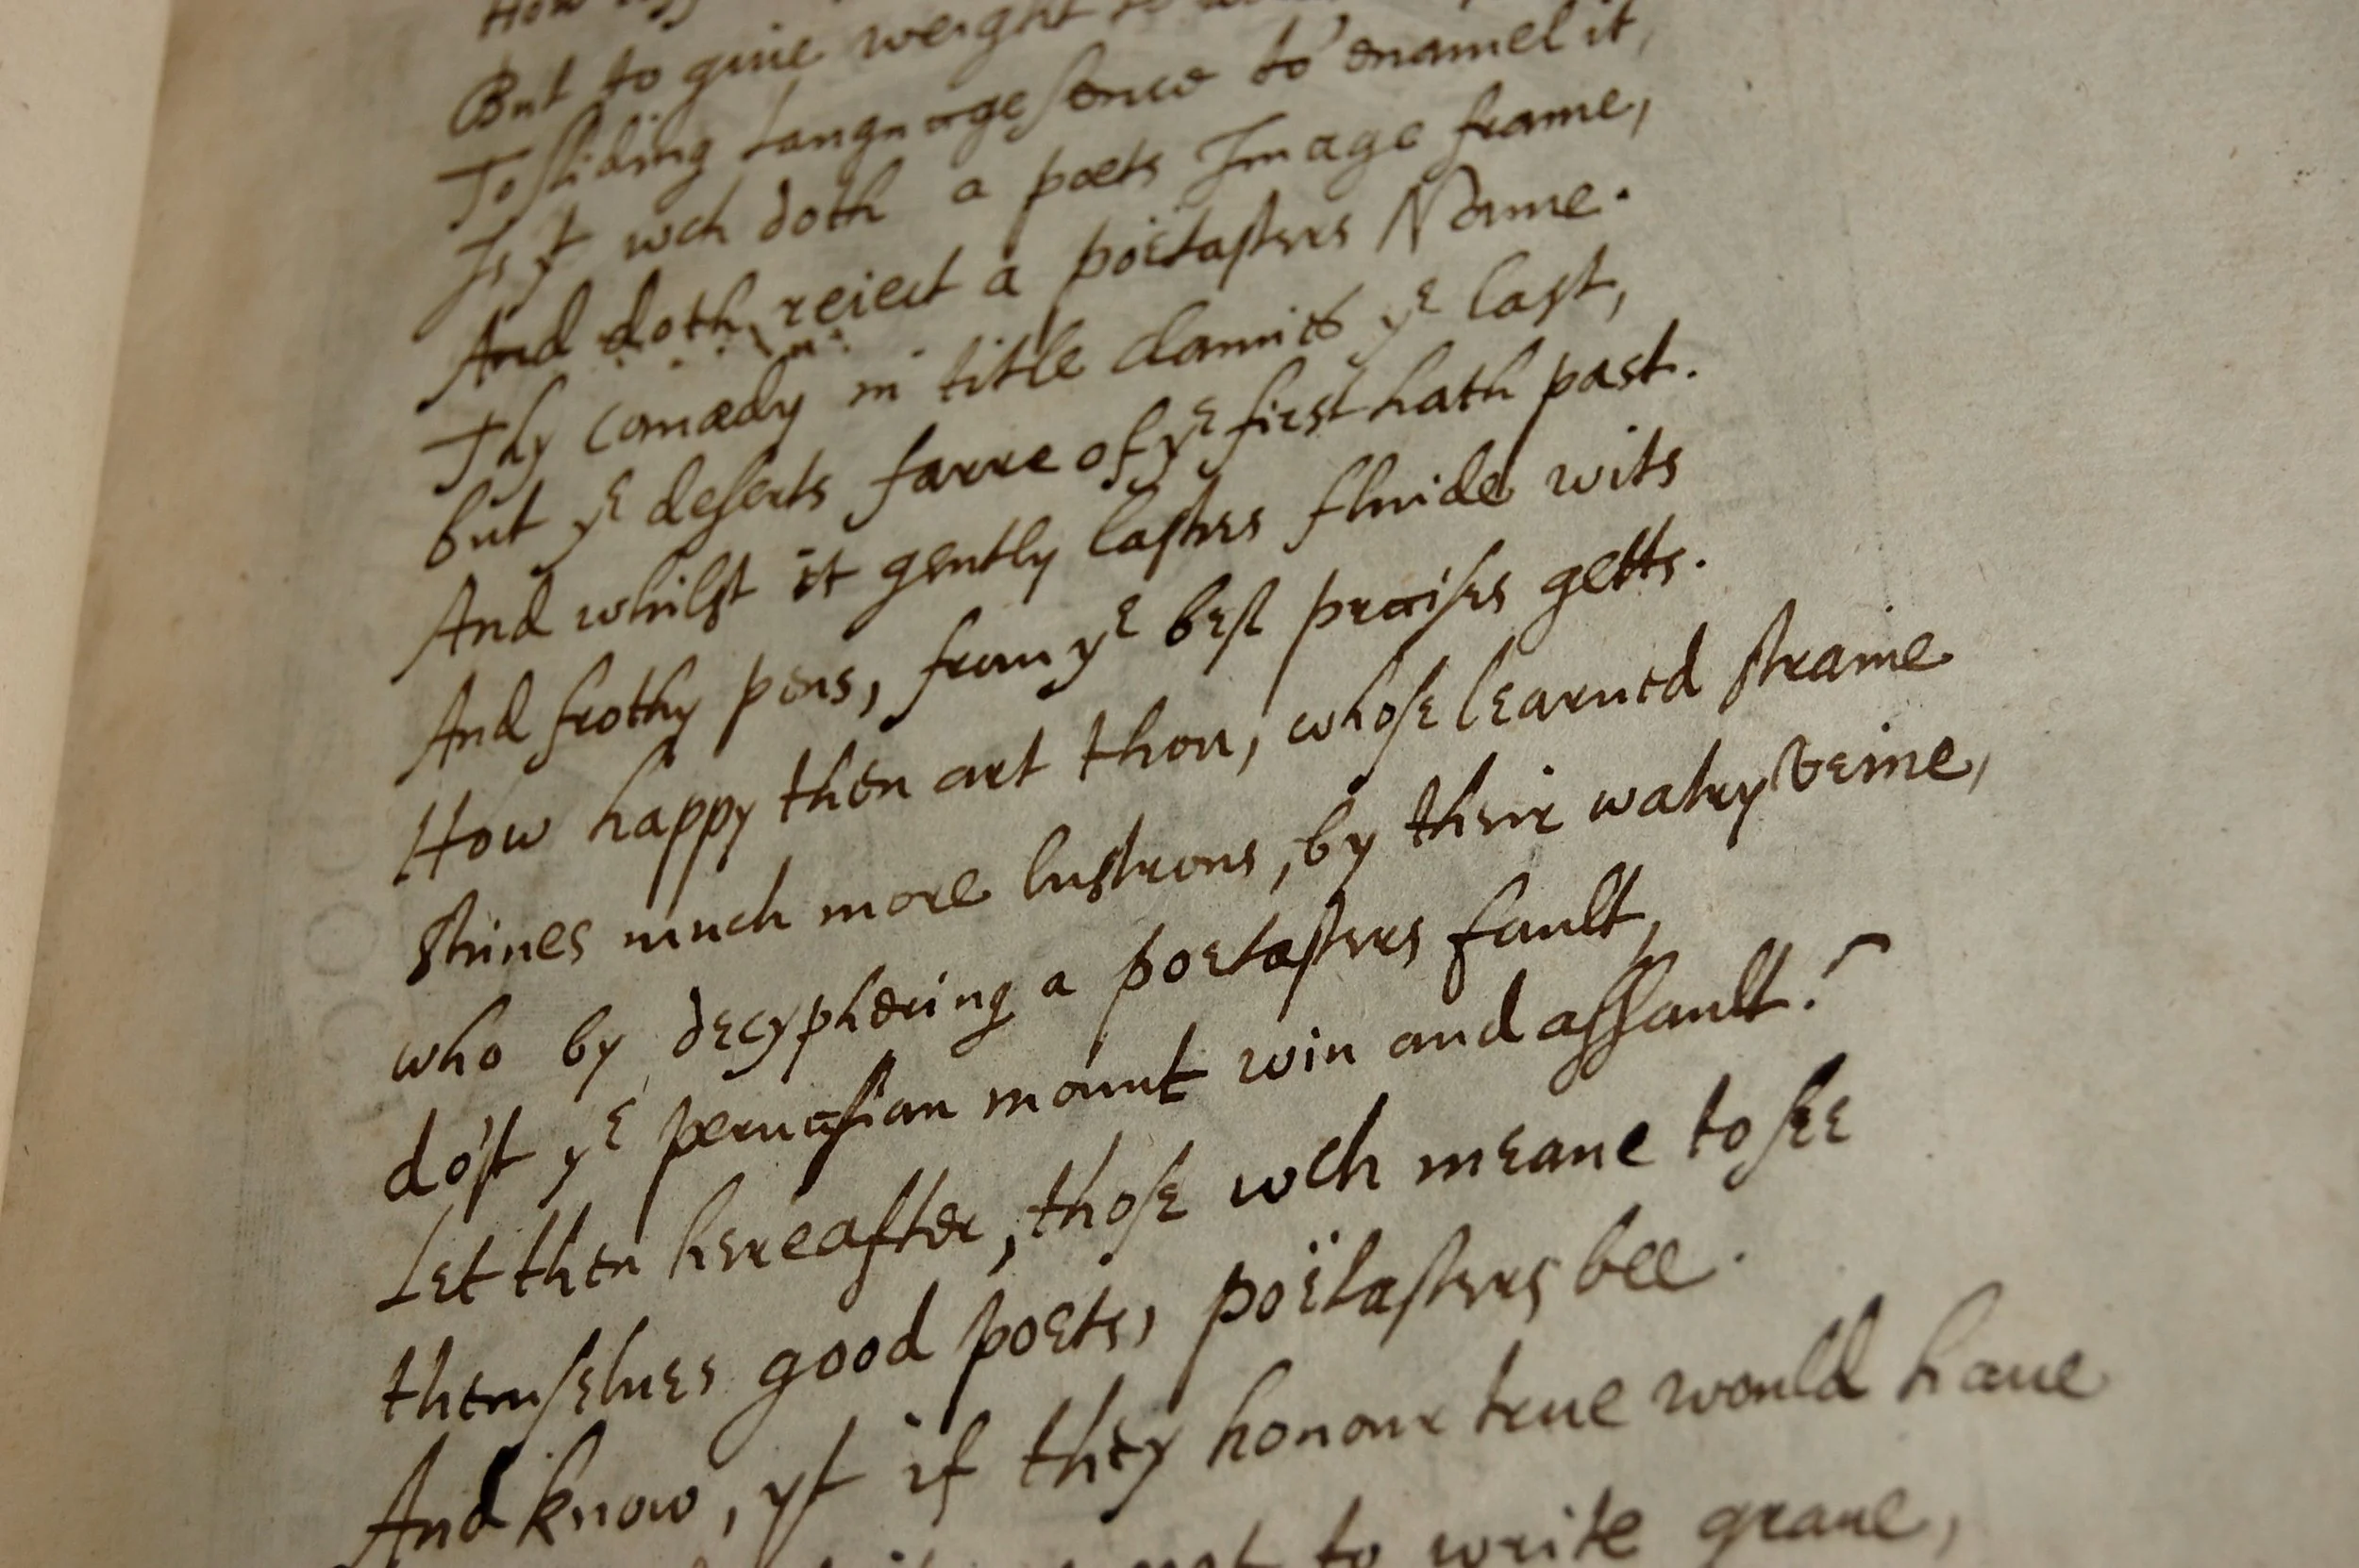 But to giue weight to
To sliding languagesence to enamel it,
Is yt wch doth a poets Image frame,
And doth reiect a poëtasters Name.
Thy comædy in title damnes ye last,
but ye deserts farre of ye first hath past.
And whilst it gently lashes fluide wits
And frothy pens, from ye best praises getts.
How happy then art thou, whose learned straine
Shines much more lustrous, by their watry veine,
who by decyphering a poetasters fault,
do'st ye pernassian mount win and assault?
Let then hereafter, those wch meane to see
themselues good poets, poëtasters bee.
And know, yt if they honour true would haue
to write graue,